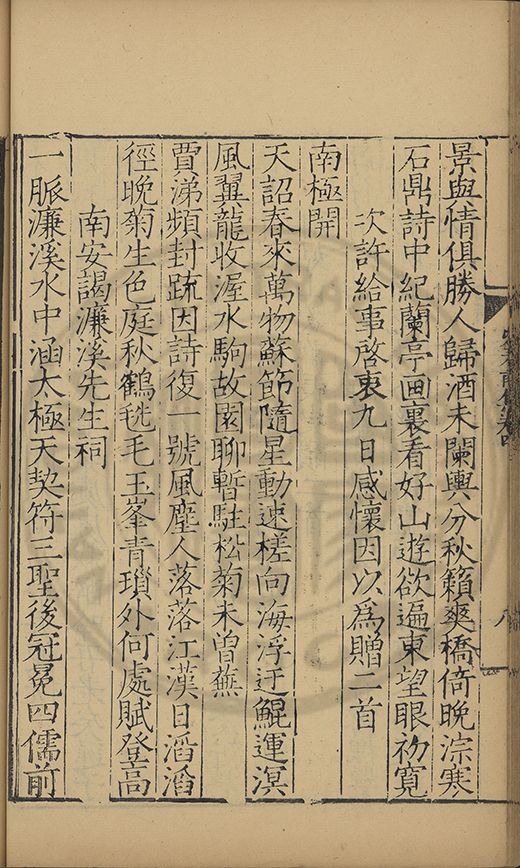 景與情俱勝人歸酒未闌興分秋籟爽橋倚晚淙寒
石鼎詩中紀蘭亭画裏看好山遊欲遍東望眼初寬
次許給事啓衷九日感懷因以為贈二首
南極開
天詔春來萬物蘇節隨星動速槎向海浮迂鯤運溟
風翼龍收渥水駒故園聊暫駐松菊未曾蕪
賈涕頻封疏因詩復一號風塵人落落江漢日滔滔
徑晚菊生色庭秋鶴毨毛玉峯青瑣外何處賦登高
南安謁濂溪先生祠
一脈濂溪水中涵太極天契符三聖後冠冕四儒前
八